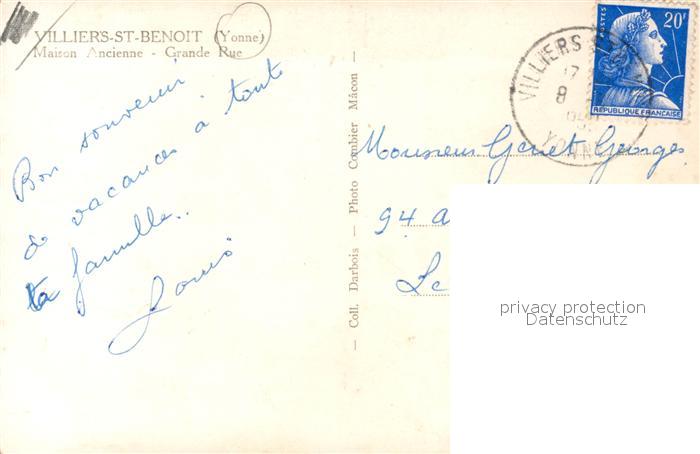 VILLIERS-ST-BENOIT (Yonne)
Maison Ancienne - Grande Rue
Bon souvenir
de vacances à toute
ta famille..
Louis
— Coll. Darbois — Photo Combier Mâcon —
POSTES
20F
REPUBLIQUE FRANÇAISE
VILLIERS
17
8
YONNE
Monsieur Genet Georges
94 A
Le
privacy protection
Datenschutz